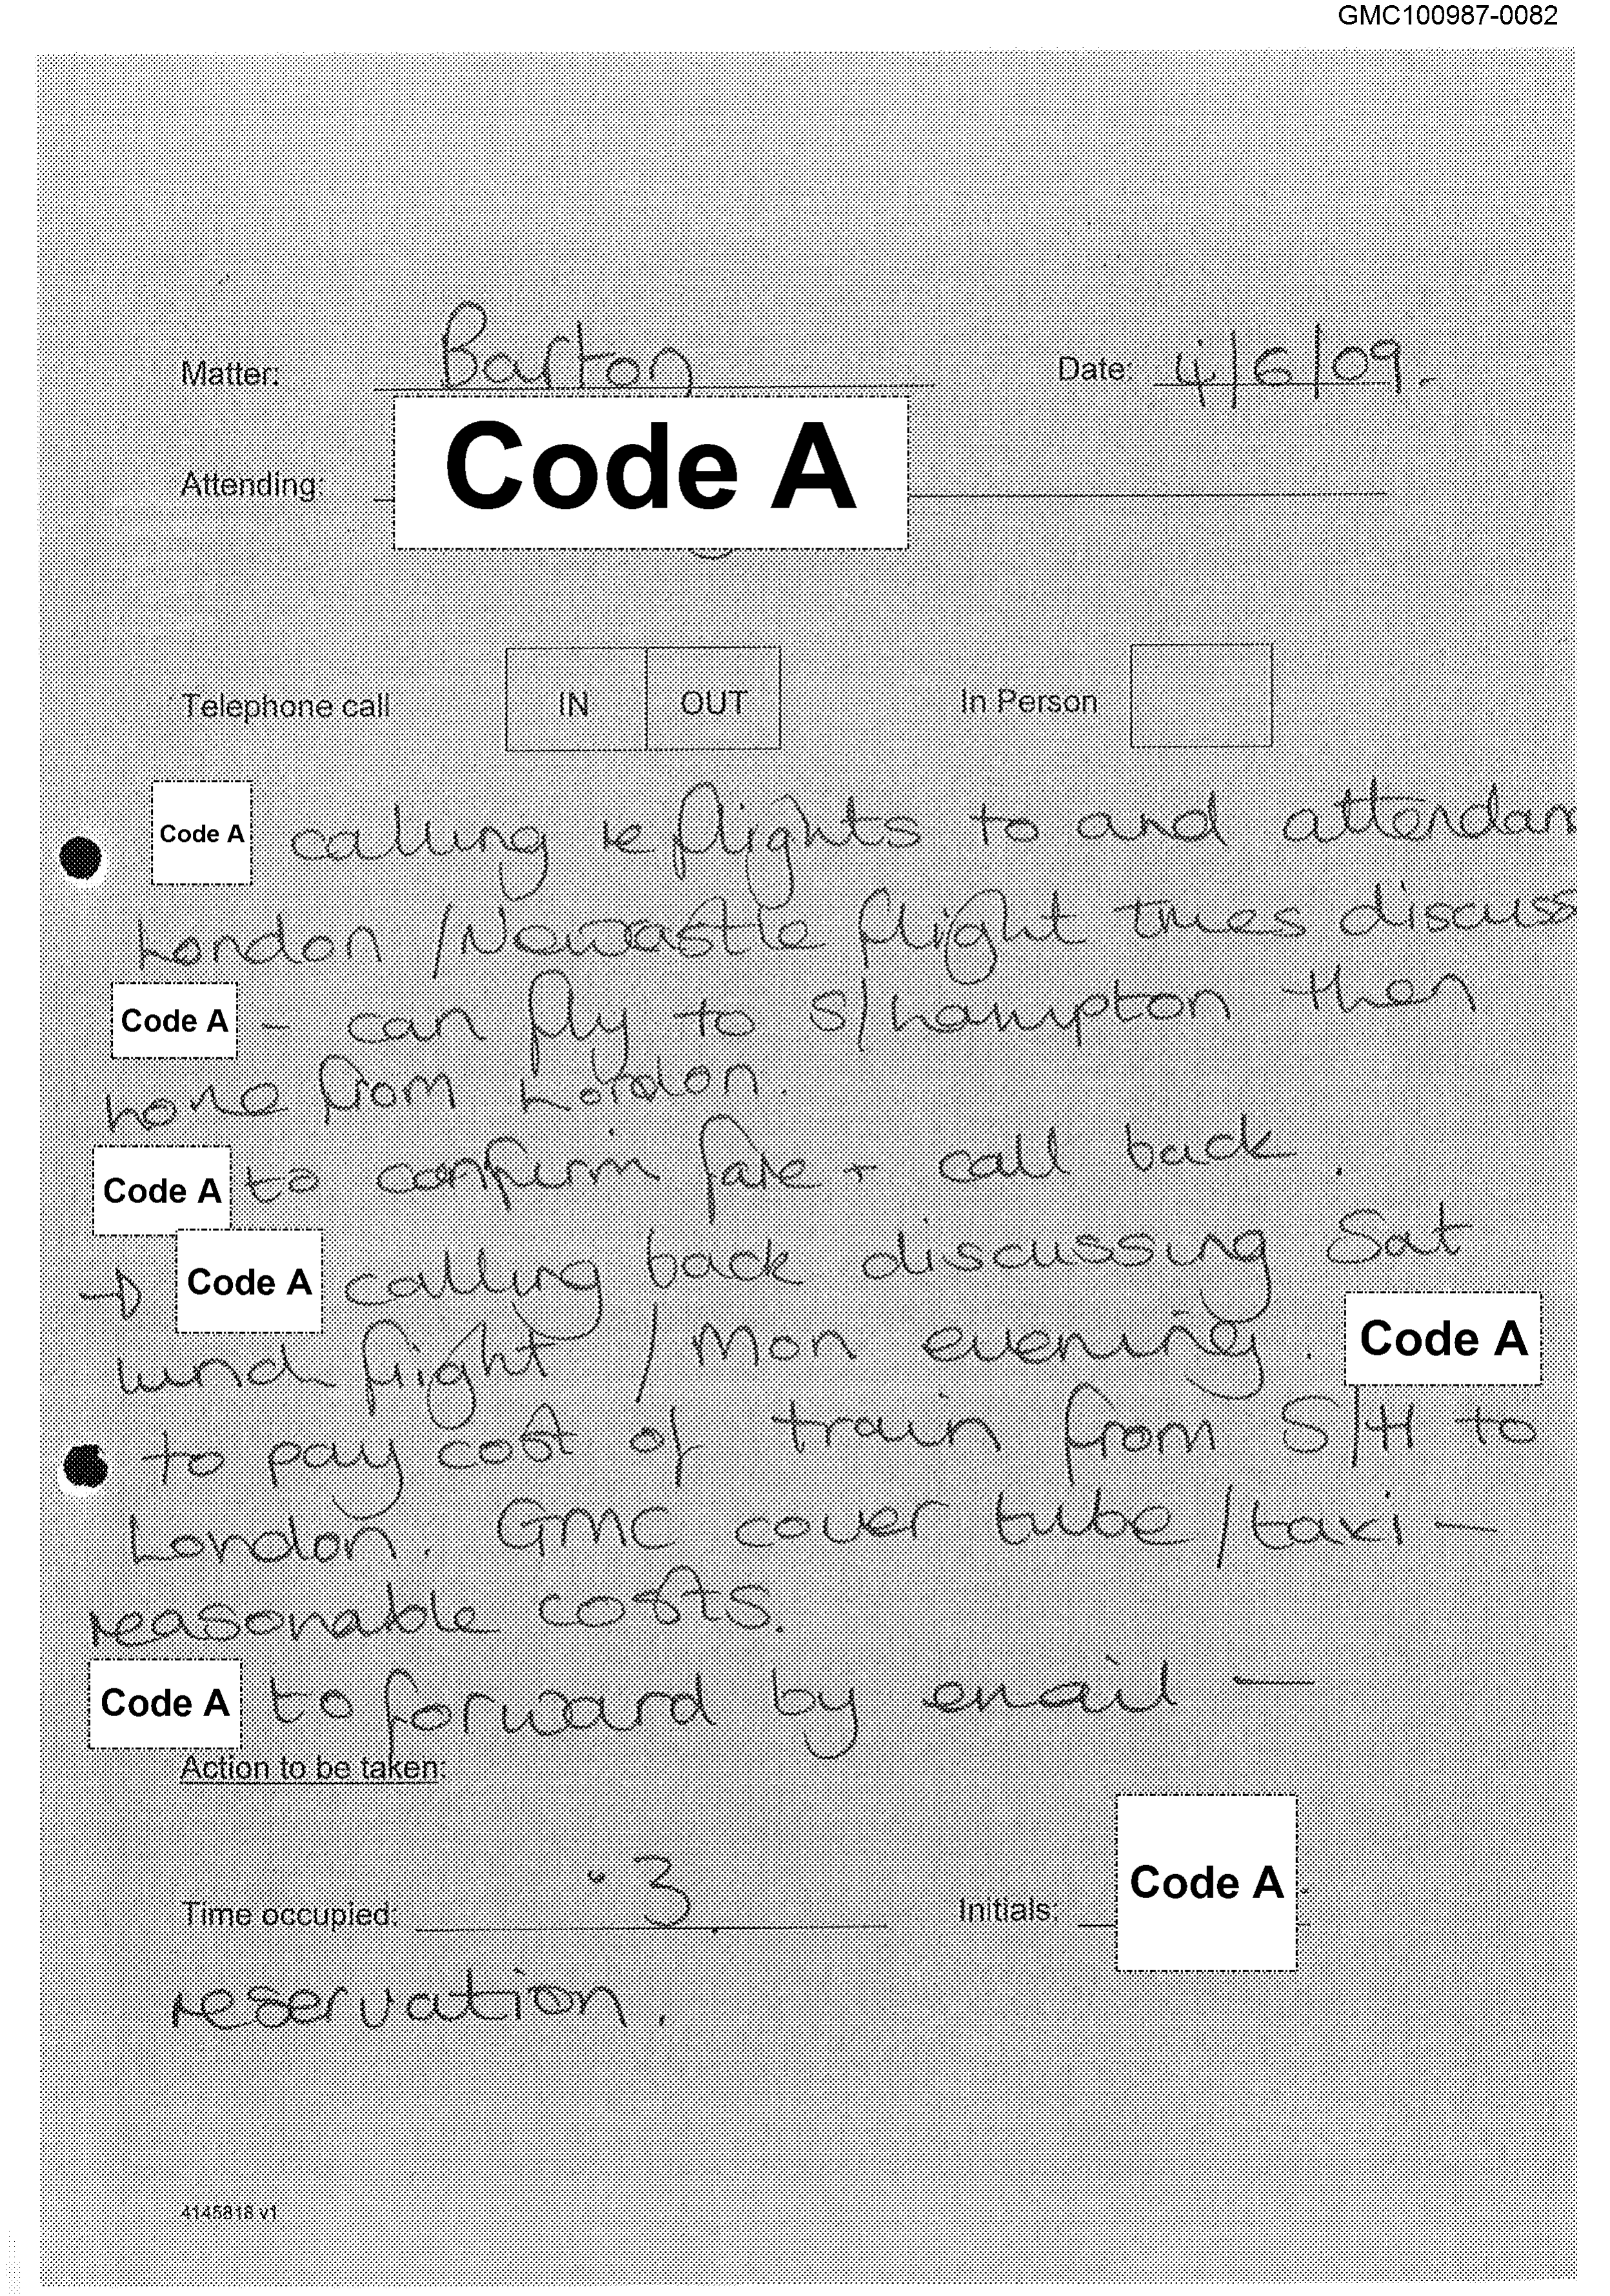 GMC100987-0082
Matter: Barton Date: 4/6/09.
Code A
Attending:
Telephone call IN OUT In Person
Code A calling re flights to and attendan
London / Newcastle flight times discuss
Code A - can fly to S/hampton then
home from London.
Code A to confirm fare + call back.
→ Code A calling back discussing Sat
lunch flight / Mon evening. Code A
to pay cost of train from S/H to
London. GMC cover tube / taxi —
reasonable costs.
Code A to forward by email —
Action to be taken:
Time occupied: .3 Initials: Code A
reservation.
4145818 v1